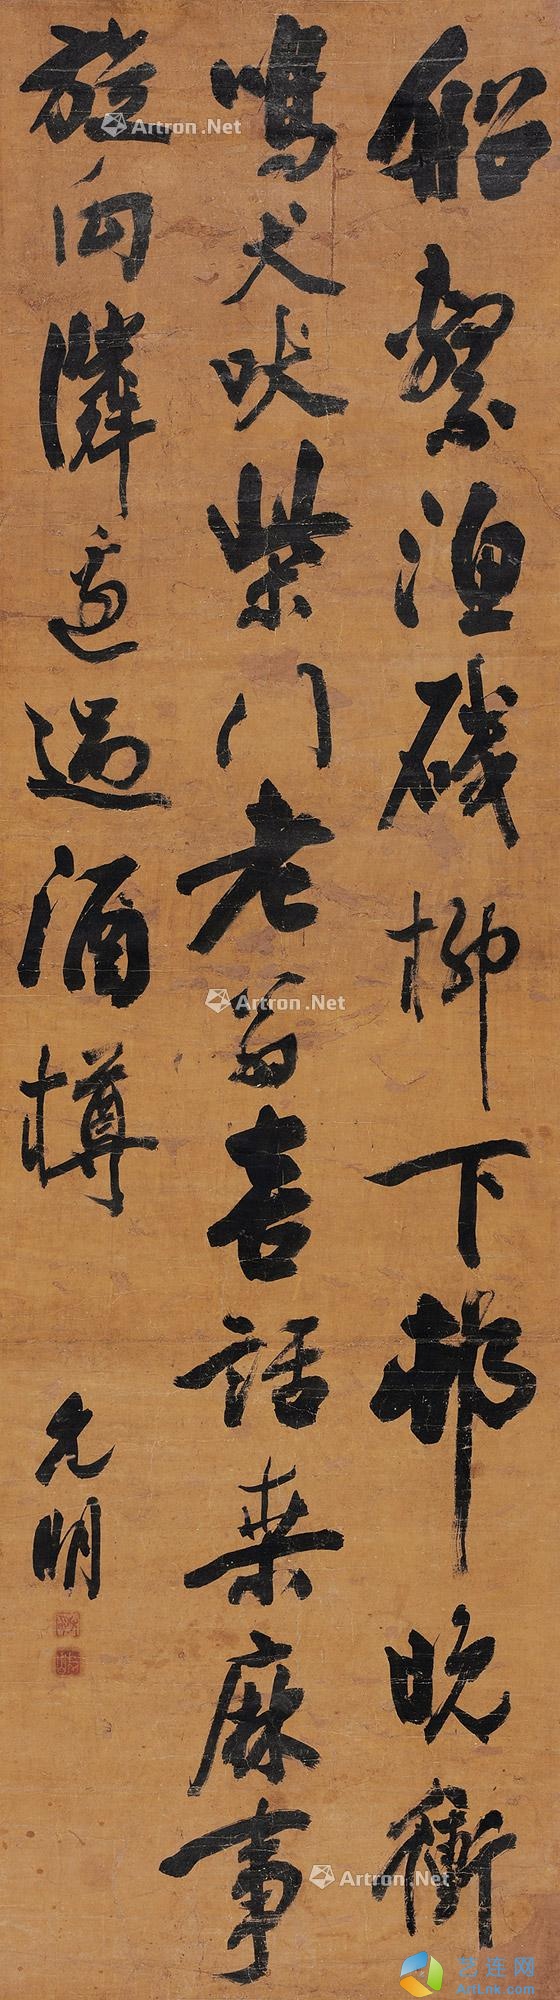 船繫漁磯柳下邨晚衝
鳴犬吠柴門老翁喜話桑麻事
旋向隣邊過酒樽
允明
Artron.Net
Artron.Net
Artron.Net
艺连网
ArtLink.com